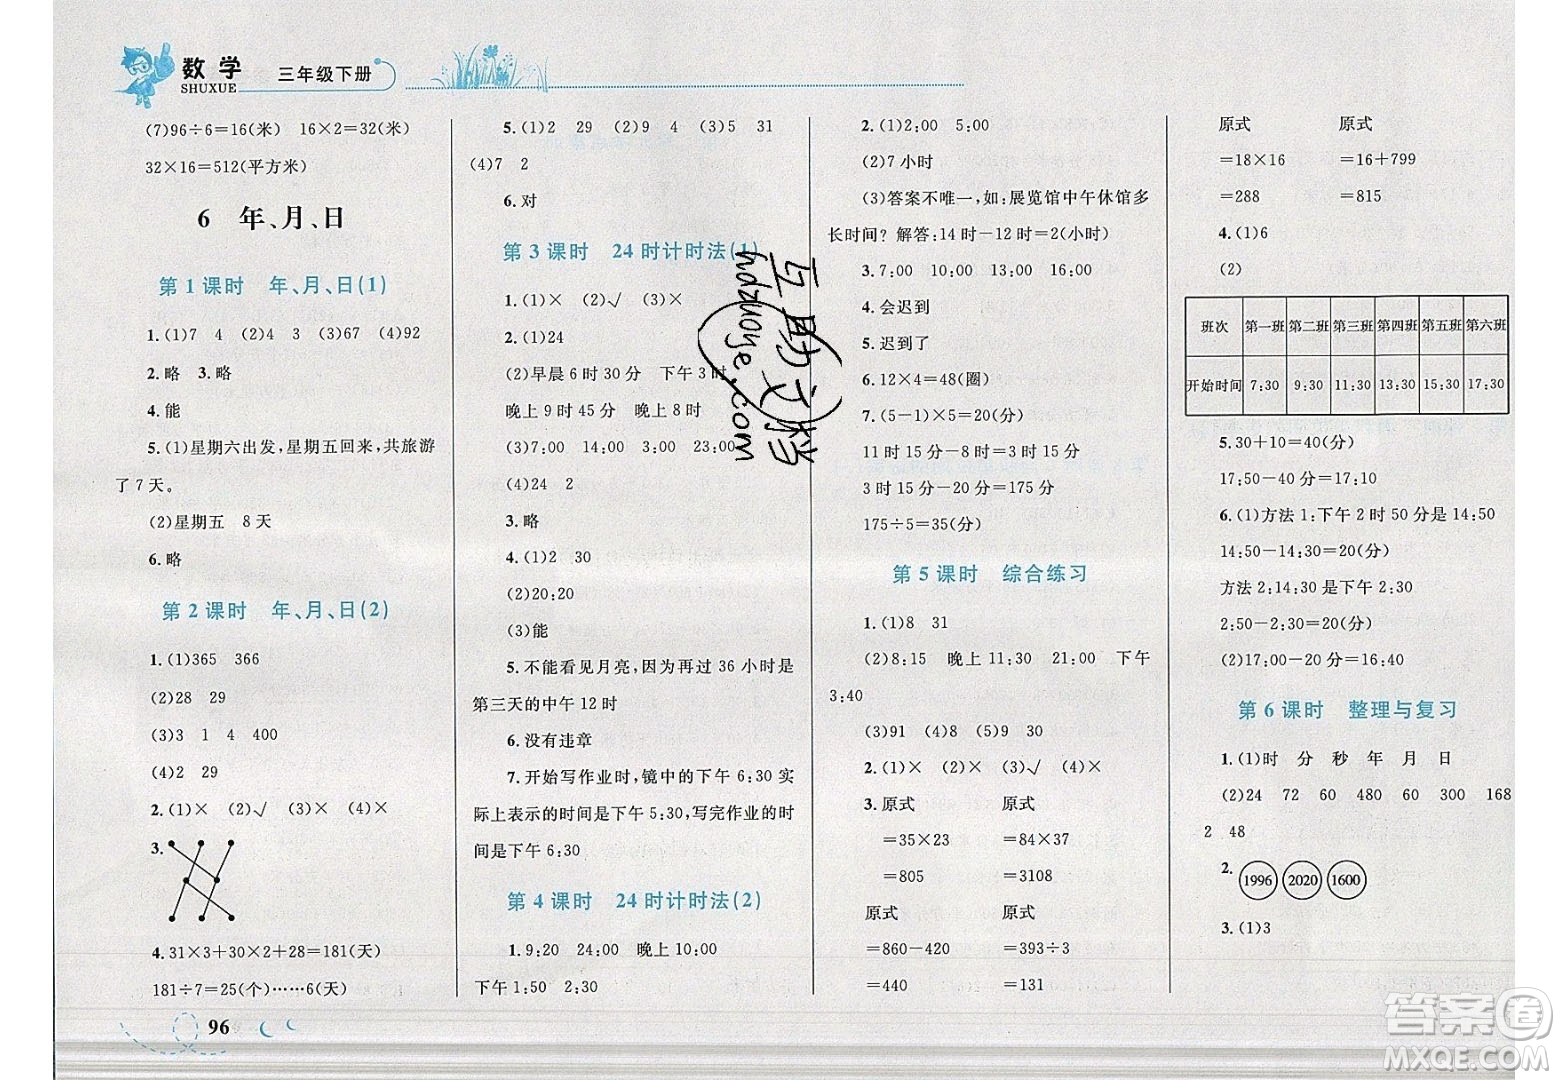 数学
SHUXUE
三年级下册
(7)96÷6=16(米) 16×2=32(米)
32×16=512(平方米)
6 年、月、日
第1课时 年、月、日(1)
1.(1)7 4 (2)4 3 (3)67 (4)92
2.略 3.略
4.能
5.(1)星期六出发,星期五回来,共旅游
了7天。
(2)星期五 8天
6.略
第2课时 年、月、日(2)
1.(1)365 366
(2)28 29
(3)3 1 4 400
(4)2 29
2.(1)× (2)√ (3)× (4)×
3.
4.31×3+30×2+28=181(天)
181÷7=25(个)……6(天)
5.(1)2 29 (2)9 4 (3)5 31
(4)7 2
6.对
第3课时 24时计时法(1)
1.(1)× (2)√ (3)×
2.(1)24
(2)早晨6时30分 下午3时
晚上9时45分 晚上8时
(3)7:00 14:00 3:00 23:00
(4)24 2
3.略
4.(1)2 30
(2)20:20
(3)能
5.不能看见月亮,因为再过36小时是
第三天的中午12时
6.没有违章
7.开始写作业时,镜中的下午6:30实
际上表示的时间是下午5:30,写完作业的时
间是下午6:30
第4课时 24时计时法(2)
1.9:20 24:00 晚上10:00
下午1:50 2:30
2.(1)2:00 5:00
(2)7小时
(3)答案不唯一,如:展览馆中午休馆多
长时间? 解答:14时-12时=2(小时)
3.7:00 10:00 13:00 16:00
4.会迟到
5.迟到了
6.12×4=48(圈)
7.(5-1)×5=20(分)
11时15分-8时=3时15分
3时15分-20分=175分
175÷5=35(分)
第5课时 综合练习
1.(1)8 31
(2)8:15 晚上11:30 21:00 下午
3:40
(3)91 (4)8 (5)9 30
2.(1)× (2)× (3)√ (4)×
3.原式 原式
=35×23 =84×37
=805 =3108
原式 原式
=860-420 =393÷3
=440 =131
原式 原式
=18×16 =16+799
=288 =815
4.(1)6
(2)
班次 第一班 第二班 第三班 第四班 第五班 第六班
开始时间 7:30 9:30 11:30 13:30 15:30 17:30
5.30+10=40(分)
17:50-40分=17:10
6.(1)方法1:下午2时50分是14:50
14:50-14:30=20(分)
方法2:14:30是下午2:30
2:50-2:30=20(分)
(2)17:00-20分=16:40
第6课时 整理与复习
1.(1)时 分 秒 年 月 日
(2)24 72 60 480 60 300 168
2 48
2. 1996 2020 1600
3.(1)3
96
互助文档
hdzuoye.com
答案圈
MXQE.COM